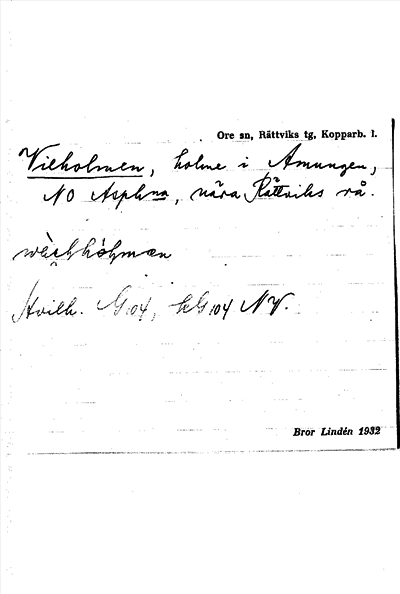 Ore sn, Rättviks tg, Kopparb. l.
Vilholmen, holme i Amungen,
NO Asphna, nära Rättviks rå.
Hvilh. G104, hG104 NV.
Bror Lindén 1932